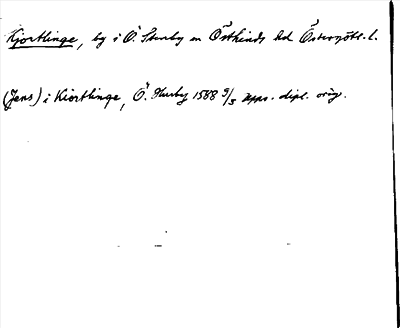 Kjortlinge, by i Ö. Skruby sn Östkinds hd Östergötl. l.
(Jens) i Kiortlinge, Ö. Skruby 1588 9/5 Upps. dipl. orig.